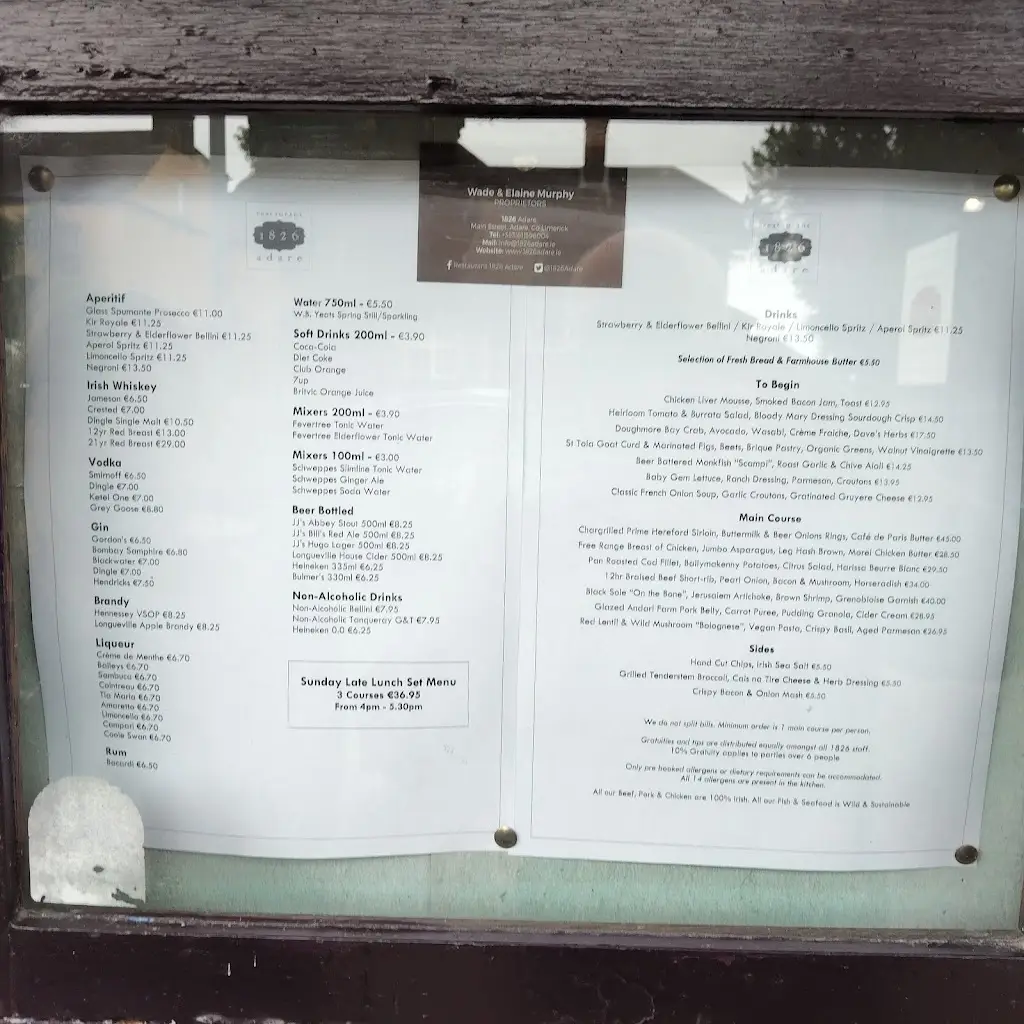 Wade & Elaine Murphy
PROPRIETORS
1826 Adare,
Main Street, Adare, Co.Limerick
Tel:
Mail: info@1826adare.ie
Website: www.1826adare.ie
Restaurant 1826 Adare @1826Adare
1826
adare
Aperitif
Glass Spumante Prosecco €11.00
Kir Royale €11.25
Strawberry & Elderflower Bellini €11.25
Aperol Spritz €11.25
Limoncello Spritz €11.25
Negroni €13.50
Irish Whiskey
Jameson €6.50
Crested €7.00
Dingle Single Malt €10.50
12yr Red Breast €13.00
21yr Red Breast €29.00
Vodka
Smirnoff €6.50
Dingle €7.00
Ketel One €7.00
Grey Goose €8.80
Gin
Gordon's €6.50
Bombay Samphire €6.80
Blackwater €7.00
Dingle €7.00
Hendricks €7.50
Brandy
Hennessey VSOP €8.25
Longueville Apple Brandy €8.25
Liqueur
Crème de Menthe €6.70
Baileys €6.70
Sambuca €6.70
Cointreau €6.70
Tia Maria €6.70
Amaretto €6.70
Limoncello €6.70
Campari €6.70
Coole Swan €6.70
Rum
Bacardi €6.50
Water 750ml - €5.50
W.B. Yeats Spring Still/Sparkling
Soft Drinks 200ml - €3.90
Coca-Cola
Diet Coke
Club Orange
7up
Britvic Orange Juice
Mixers 200ml - €3.90
Fevertree Tonic Water
Fevertree Elderflower Tonic Water
Mixers 100ml - €3.00
Schweppes Slimline Tonic Water
Schweppes Ginger Ale
Schweppes Soda Water
Beer Bottled
JJ's Abbey Stout 500ml €8.25
JJ's Bill's Red Ale 500ml €8.25
JJ's Hugo Lager 500ml €8.25
Longueville House Cider 500ml €8.25
Heineken 335ml €6.25
Bulmer's 330ml €6.25
Non-Alcoholic Drinks
Non-Alcoholic Bellini €7.95
Non-Alcoholic Tanqueray G&T €7.95
Heineken 0.0 €6.25
Sunday Late Lunch Set Menu
3 Courses €36.95
From 4pm - 5.30pm
1826
adare
Drinks
Strawberry & Elderflower Bellini / Kir Royale / Limoncello Spritz / Aperol Spritz €11.25
Negroni €13.50
Selection of Fresh Bread & Farmhouse Butter €5.50
To Begin
Chicken Liver Mousse, Smoked Bacon Jam, Toast €12.95
Heirloom Tomato & Burrata Salad, Bloody Mary Dressing Sourdough Crisp €14.50
Doughmore Bay Crab, Avocado, Wasabi, Crème Fraiche, Dave's Herbs €17.50
St Tola Goat Curd & Marinated Figs, Beets, Brique Pastry, Organic Greens, Walnut Vinaigrette €13.50
Beer Battered Monkfish "Scampi", Roast Garlic & Chive Aioli €14.25
Baby Gem Lettuce, Ranch Dressing, Parmesan, Croutons €13.95
Classic French Onion Soup, Garlic Croutons, Gratinated Gruyere Cheese €12.95
Main Course
Chargrilled Prime Hereford Sirloin, Buttermilk & Beer Onions Rings, Café de Paris Butter €45.00
Free Range Breast of Chicken, Jumbo Asparagus, Leg Hash Brown, Morel Chicken Butter €28.50
Pan Roasted Cod Fillet, Ballymakenny Potatoes, Citrus Salad, Harissa Beurre Blanc €29.50
12hr Braised Beef Short-rib, Pearl Onion, Bacon & Mushroom, Horseradish €34.00
Black Sole "On the Bone", Jerusalem Artichoke, Brown Shrimp, Grenobloise Garnish €40.00
Glazed Andarl Farm Pork Belly, Carrot Puree, Pudding Granola, Cider Cream €28.95
Red Lentil & Wild Mushroom "Bolognese", Vegan Pasta, Crispy Basil, Aged Parmesan €26.95
Sides
Hand Cut Chips, Irish Sea Salt €5.50
Grilled Tenderstem Broccoli, Cais na Tire Cheese & Herb Dressing €5.50
Crispy Bacon & Onion Mash €5.50
We do not split bills. Minimum order is 1 main course per person.
Gratuities and tips are distributed equally amongst all 1826 staff.
10% Gratuity applies to parties over 6 people
Only pre booked allergens or dietary requirements can be accommodated.
All 14 allergens are present in the kitchen.
All our Beef, Pork & Chicken are 100% Irish. All our Fish & Seafood is Wild & Sustainable